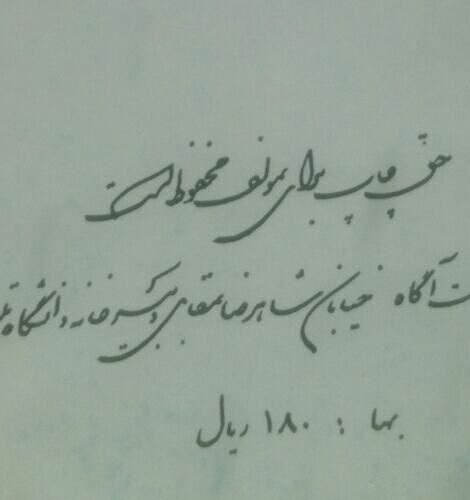 حق چاپ برای مولف محفوظ است
آگاه خیابان شاهرضا مقابل دبیرخانه دانشگاه
بها : ۱۸۰ ریال